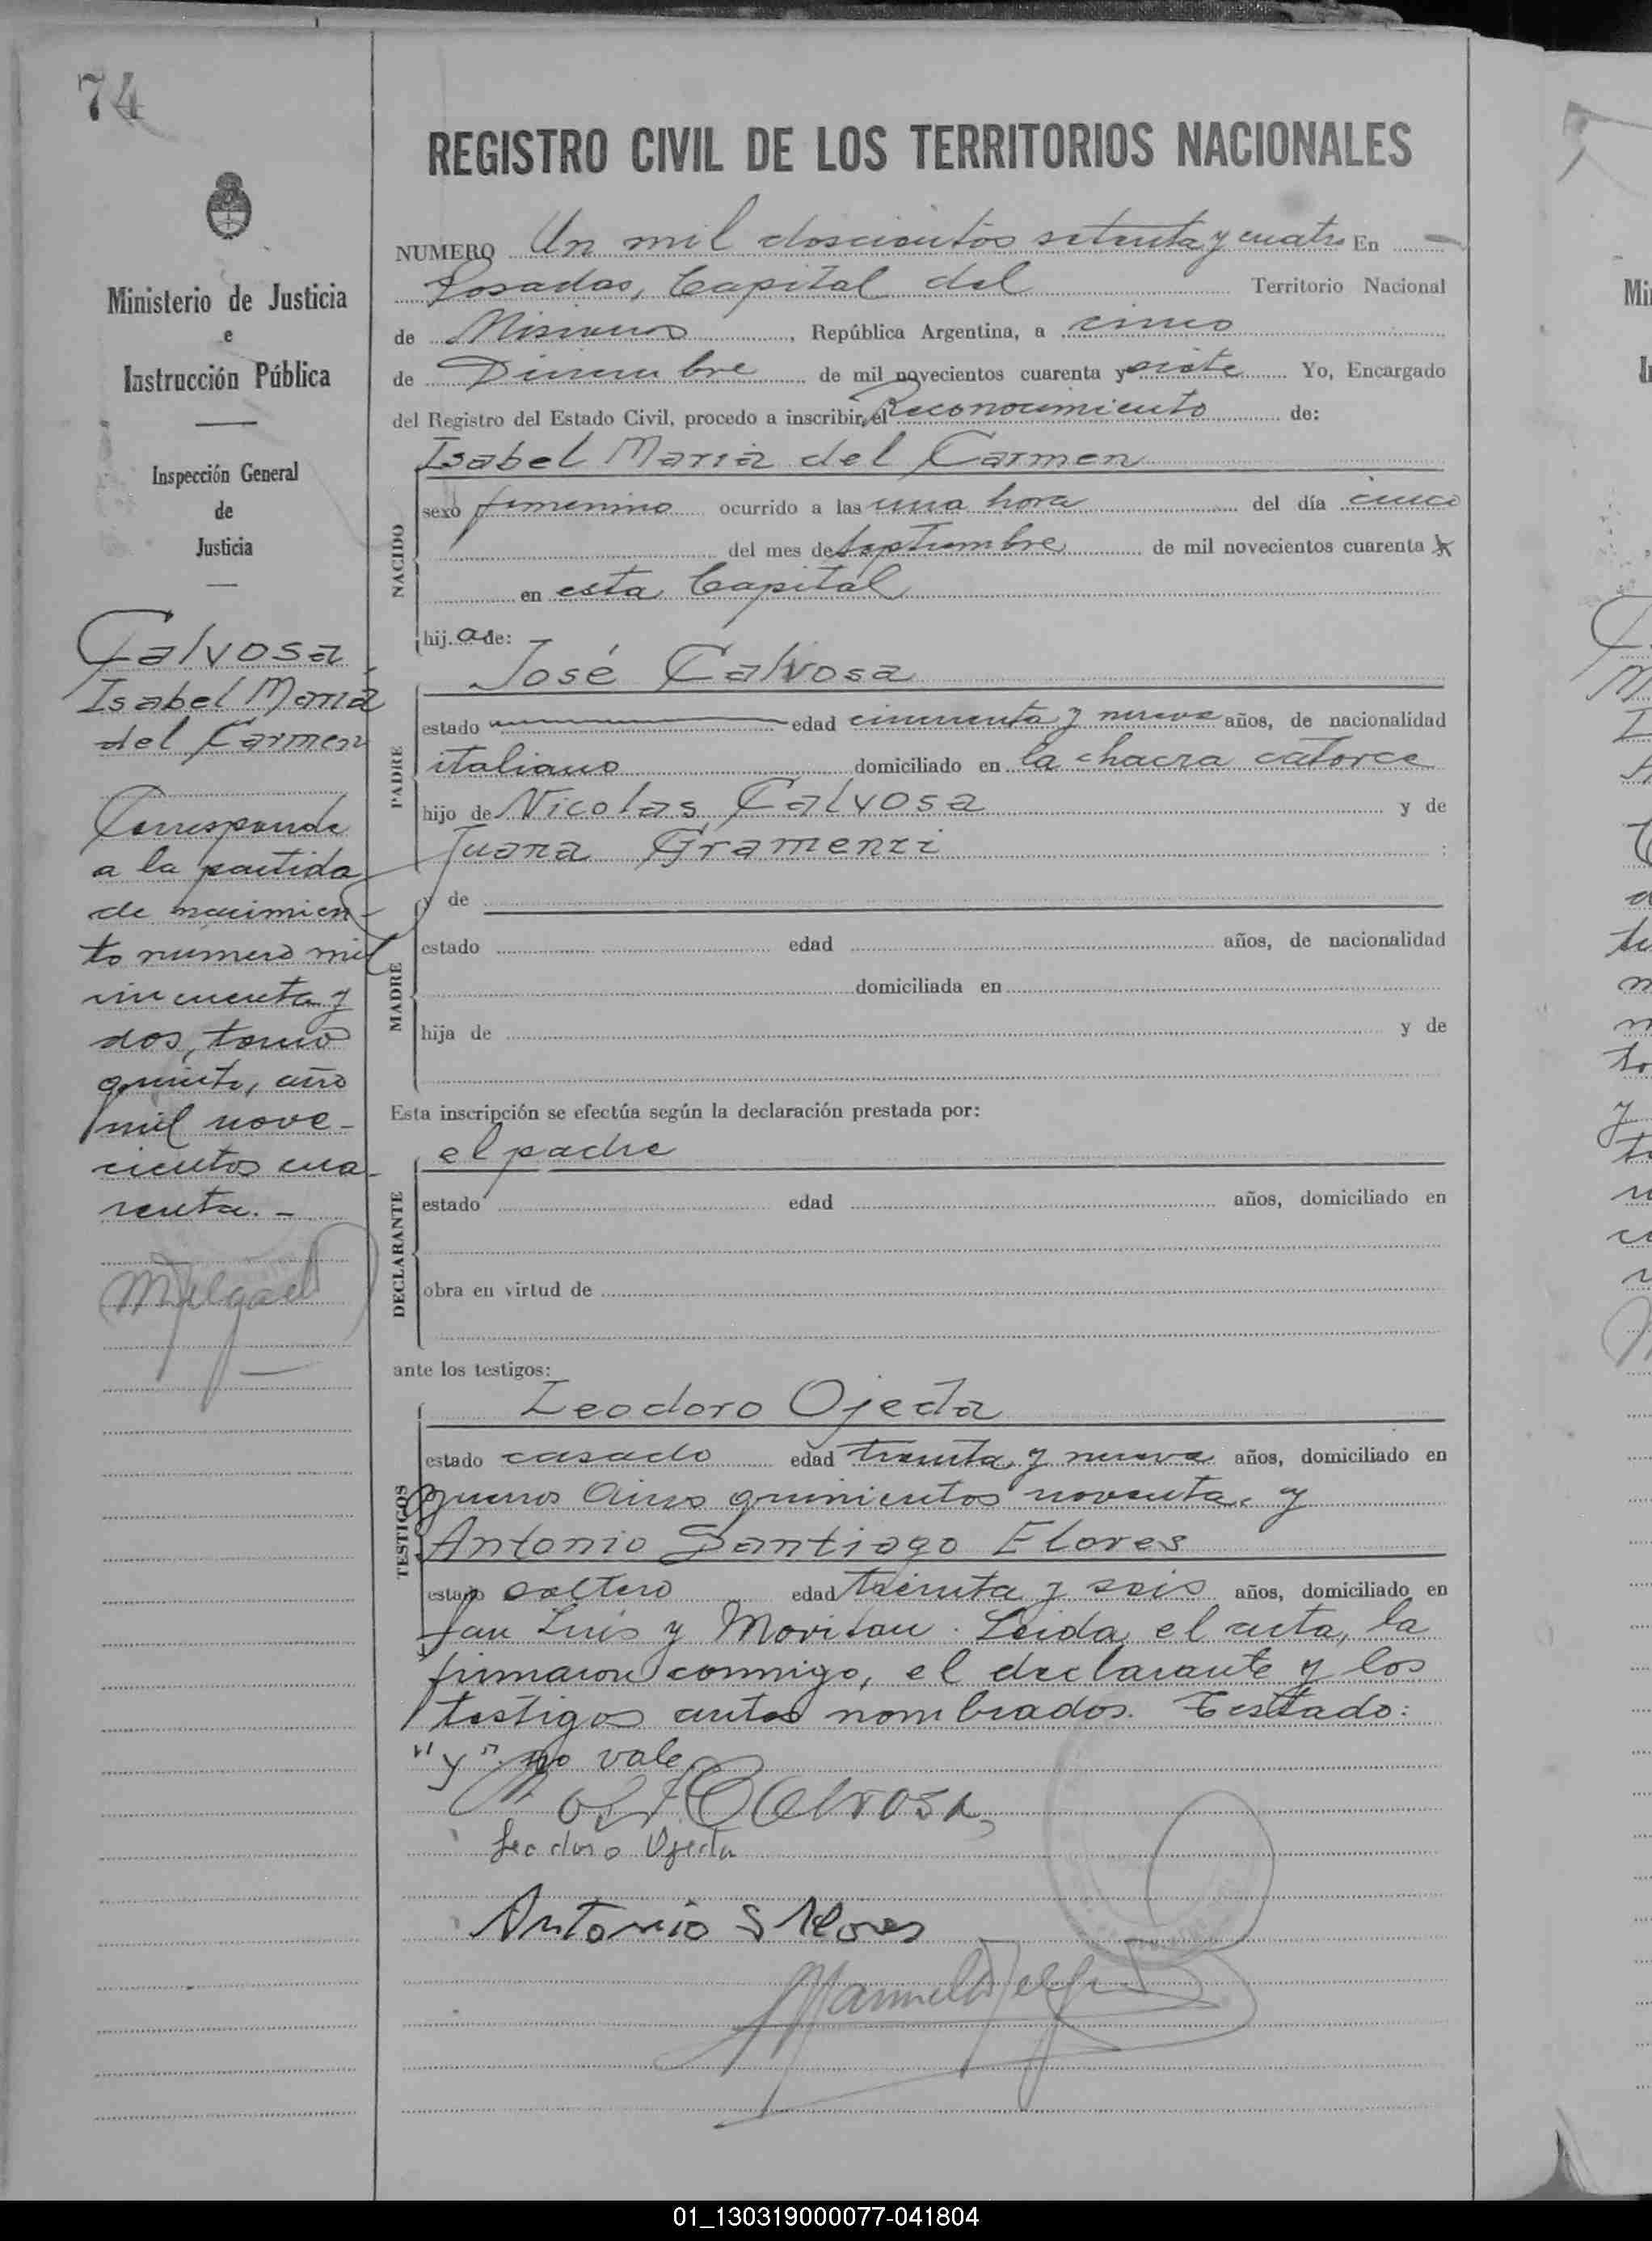 74
Ministerio de Justicia
e
Instrucción Pública
Inspección General
de
Justicia
Calvosa
Isabel María
del Carmen
Corresponde
a la partida
de nacimien-
to número mil
cincuenta y
dos, tomo
quinto, año
mil nove-
cientos cua-
renta.-
REGISTRO CIVIL DE LOS TERRITORIOS NACIONALES
NUMERO Un mil doscientos setenta y cuatro En
Posadas, Capital del Territorio Nacional
de Misiones, República Argentina, a cinco
de Diciembre de mil novecientos cuarenta y siete Yo, Encargado
del Registro del Estado Civil, procedo a inscribir, el Reconocimiento de:
Isabel María del Carmen
NACIDO
sexo femenino ocurrido a las una hora del día cinco
del mes de septiembre de mil novecientos cuarenta y
en esta Capital
hij.a de:
José Calvosa
PADRE
estado edad cincuenta y nueve años, de nacionalidad
italiano domiciliado en la chacra catorce
hijo de Nicolas Calvosa y de
Juana Gramenzi
MADRE
y de
estado edad años, de nacionalidad
domiciliada en
hija de y de
Esta inscripción se efectúa según la declaración prestada por:
el padre
DECLARANTE
estado edad años, domiciliado en
obra en virtud de
ante los testigos:
Leodoro Ojeda
TESTIGOS
estado casado edad treinta y nueve años, domiciliado en
Buenos Aires quinientos noventa y
Antonio Santiago Flores
estado soltero edad treinta y seis años, domiciliado en
San Luis y Moritan. Leida el acta, la
firmaron conmigo, el declarante y los
testigos antes nombrados. Testado:
"y" no vale
Calvosa
Leodoro Ojeda
Antonio S Flores
01_130319000077-041804